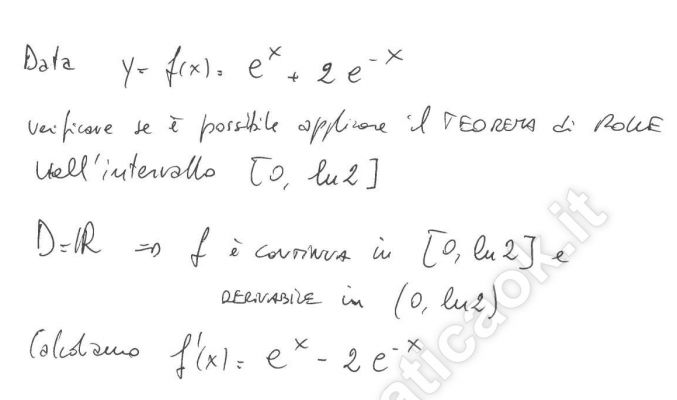 Data y = f(x) = e^x + 2e^-x
verificare se è possibile applicare il TEOREMA di ROLLE
nell'intervallo [0, ln2]
D=ℝ ⇒ f è CONTINUA in [0, ln2] e
DERIVABILE in (0, ln2)
Calcoliamo f'(x) = e^x - 2e^-x
aticaok.it